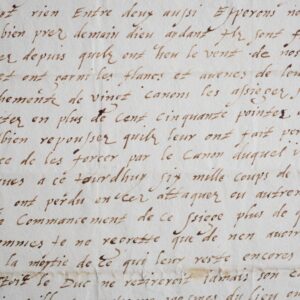 rien Entre deux aussi Esperons no
bien pres demain dieu aidant Ilz sont f
depuis quilz ont heu le vent de nos
et ont garni les flancs et avenes de leur
chements de vingt canons les assiegez
en plus de Cent cinquante pointes
bien repousser quilz leur ont fait po
ce de les forcer par le Canon duquel i
ques a ce Jourdhuy six mille coups de
ont perdu en cez attaques ou autres
Commancement de ce siege plus de
ommes Je ne regrette que de nen avoir
la moitie de ce qui leur reste encores
le Duc ne retireroit Jamais son